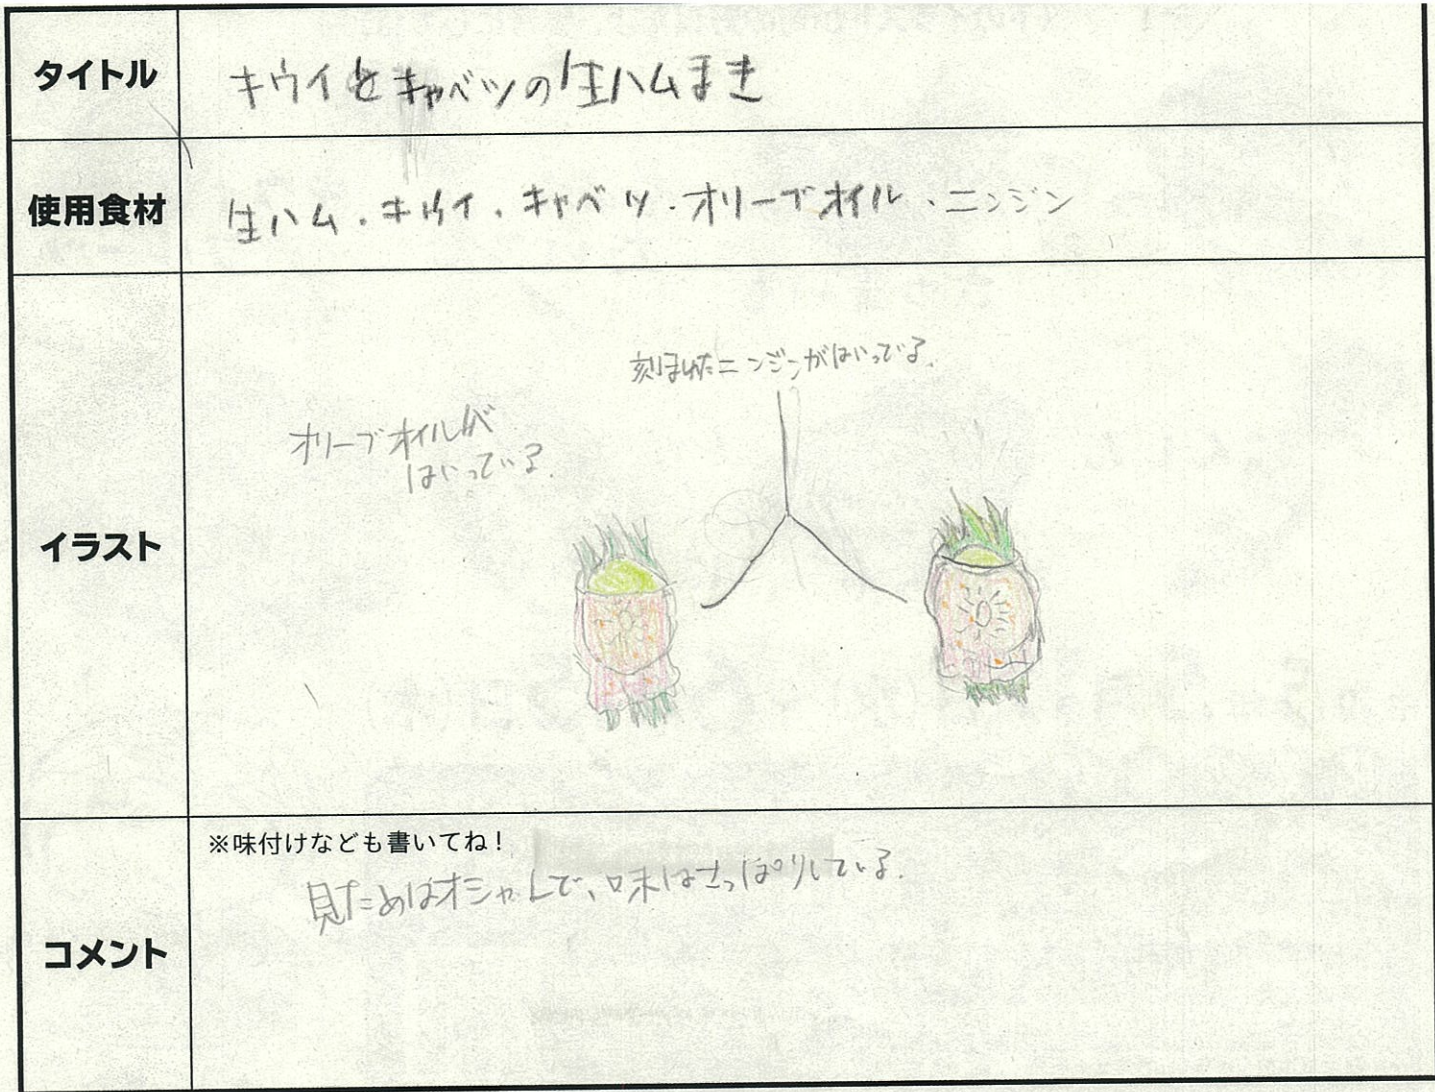 タイトル
キウイとキャベツの生ハムまき
使用食材
生ハム・キウイ・キャベツ・オリーブオイル・ニンジン
イラスト
刻まれたニンジンがはいっている。
オリーブオイルが
はいっている。
コメント
※味付けなども書いてね!
見ためはオシャレで、味はさっぱりしている。